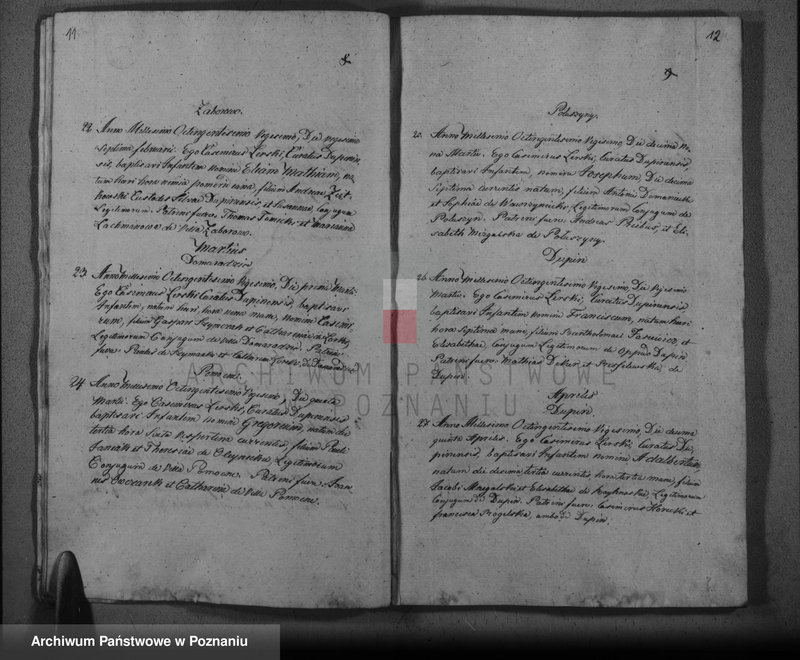 11
8
Zaborowo.
22. Anno Millesimo Octingentesimo Vigesimo, Die vigesima
septima februarii. Ego Casimirus Lerski, Curatus Dupinen-
sis, baptisavi Infantem nomine Mathiam, na-
tum heri hora nona pomeridiana, filium Andreae
Custodis Silvae Dupinensis, et Susannae Conjugum
Legitimorum. Patrini fuere, Thomas et Marianna
Lachmanowa de Villa Zaborowo.
Martius
Domaradzice
23. Anno Millesimo Octingentesimo Vigesimo, Die prima Martii
Ego Casimirus Lerski Curatus Dupinensis, baptisavi
Infantem, natum heri, hora nona mane, nomine Casimi-
rum, filium Gaspari et Catharinae
Legitimorum Conjugum de Villa Domaradzice. Patrini
fuere et Catharina de Domaradzice
Pomocno.
24. Anno Millesimo Octingentesimo Vigesimo, Die quarta
Martii. Ego Casimirus Lerski, Curatus Dupinensis
baptisavi Infantem nomine Gregorium, natum die
tertia hora sexta vespertina currentis, filium Pauli
et Theresiae de Legitimorum
Conjugum de Villa Pomocno. Patrini fuere, Joan-
nes et Catharina de Villa Pomocno.
12
9
Potuszyny.
25. Anno Millesimo Octingentesimo Vigesimo, Die decima no-
na Martii. Ego Casimirus Lerski, Curatus Dupinensis
baptisavi Infantem, nomine Josephum, Die decima
Septima currentis natum, filium Antonii
et Sophiae de Legitimorum Conjugum de
Patrini fuere, Andreas et Eli-
sabeth de
Dupin
26. Anno Millesimo Octingentesimo Vigesimo, Die Vigesima
Martii, Ego Casimirus Lerski, Curatus Dupinensis
baptisavi Infantem nomine Franciscum, natum heri
hora septima mane, filium Bartholomaei et
Elisabethae, Conjugum Legitimorum de Oppido Dupin
Patrini fuere Mathias et de
Dupin
Aprilis
Dupin.
27. Anno Millesimo Octingentesimo Vigesimo, Die decima
quarta Aprilis. Ego Casimirus Lerski, Curatus Du-
pinensis, baptisavi Infantem nomine Adalbertum,
natum die decima tertia currentis, hora tertia mane, filium
Jacobi et Elisabethae de Legitimorum
Conjugum de Dupin. Patrini fuere, Casimirus et
Francisca ambo de Dupin.
ARCHIWUM PAŃSTWOWE
W POZNANIU
Archiwum Państwowe w Poznaniu